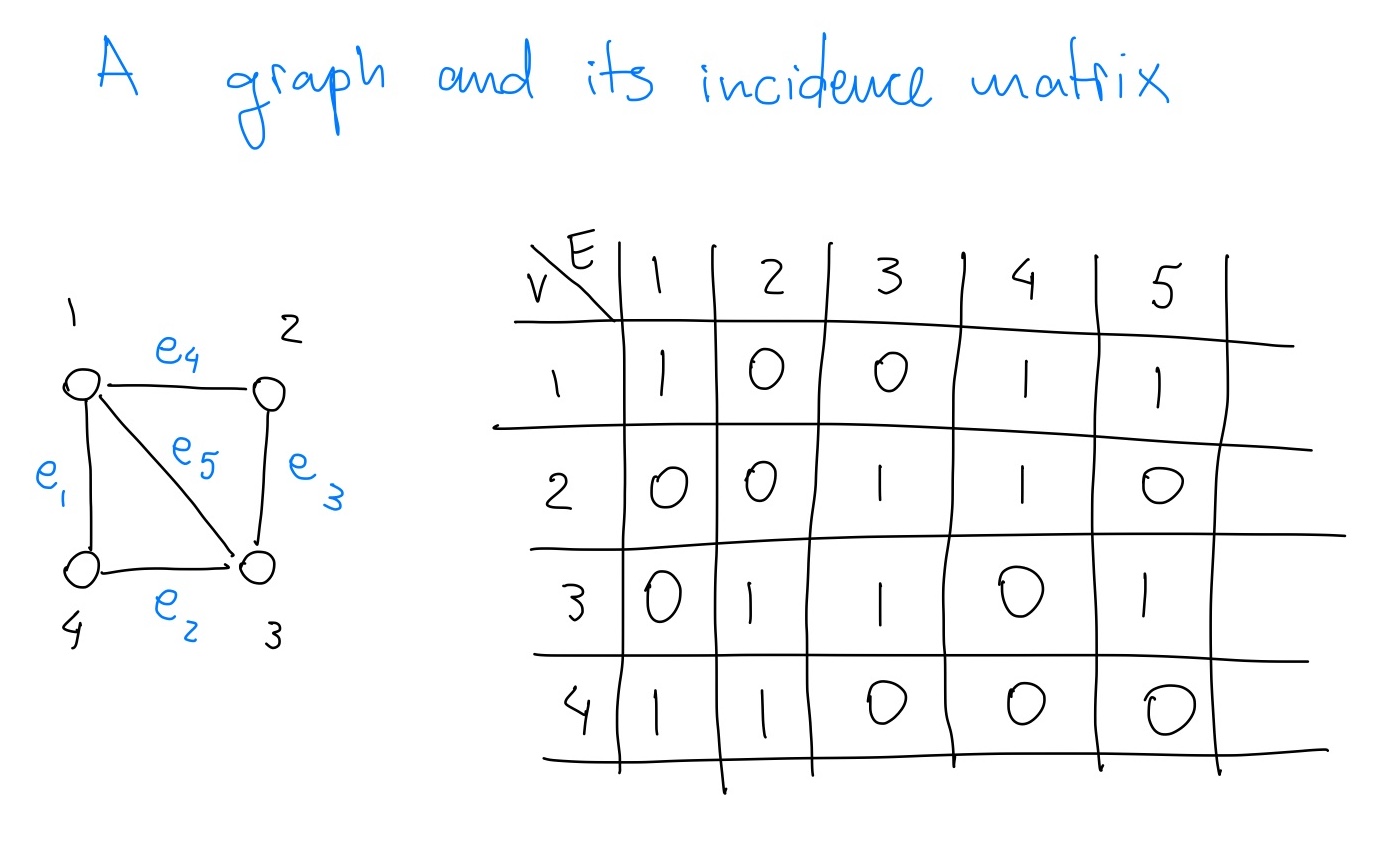 A graph and its incidence matrix
1 2
e4
e1 e5 e3
e2
4 3
V E 1 2 3 4 5
1 1 0 0 1 1
2 0 0 1 1 0
3 0 1 1 0 1
4 1 1 0 0 0